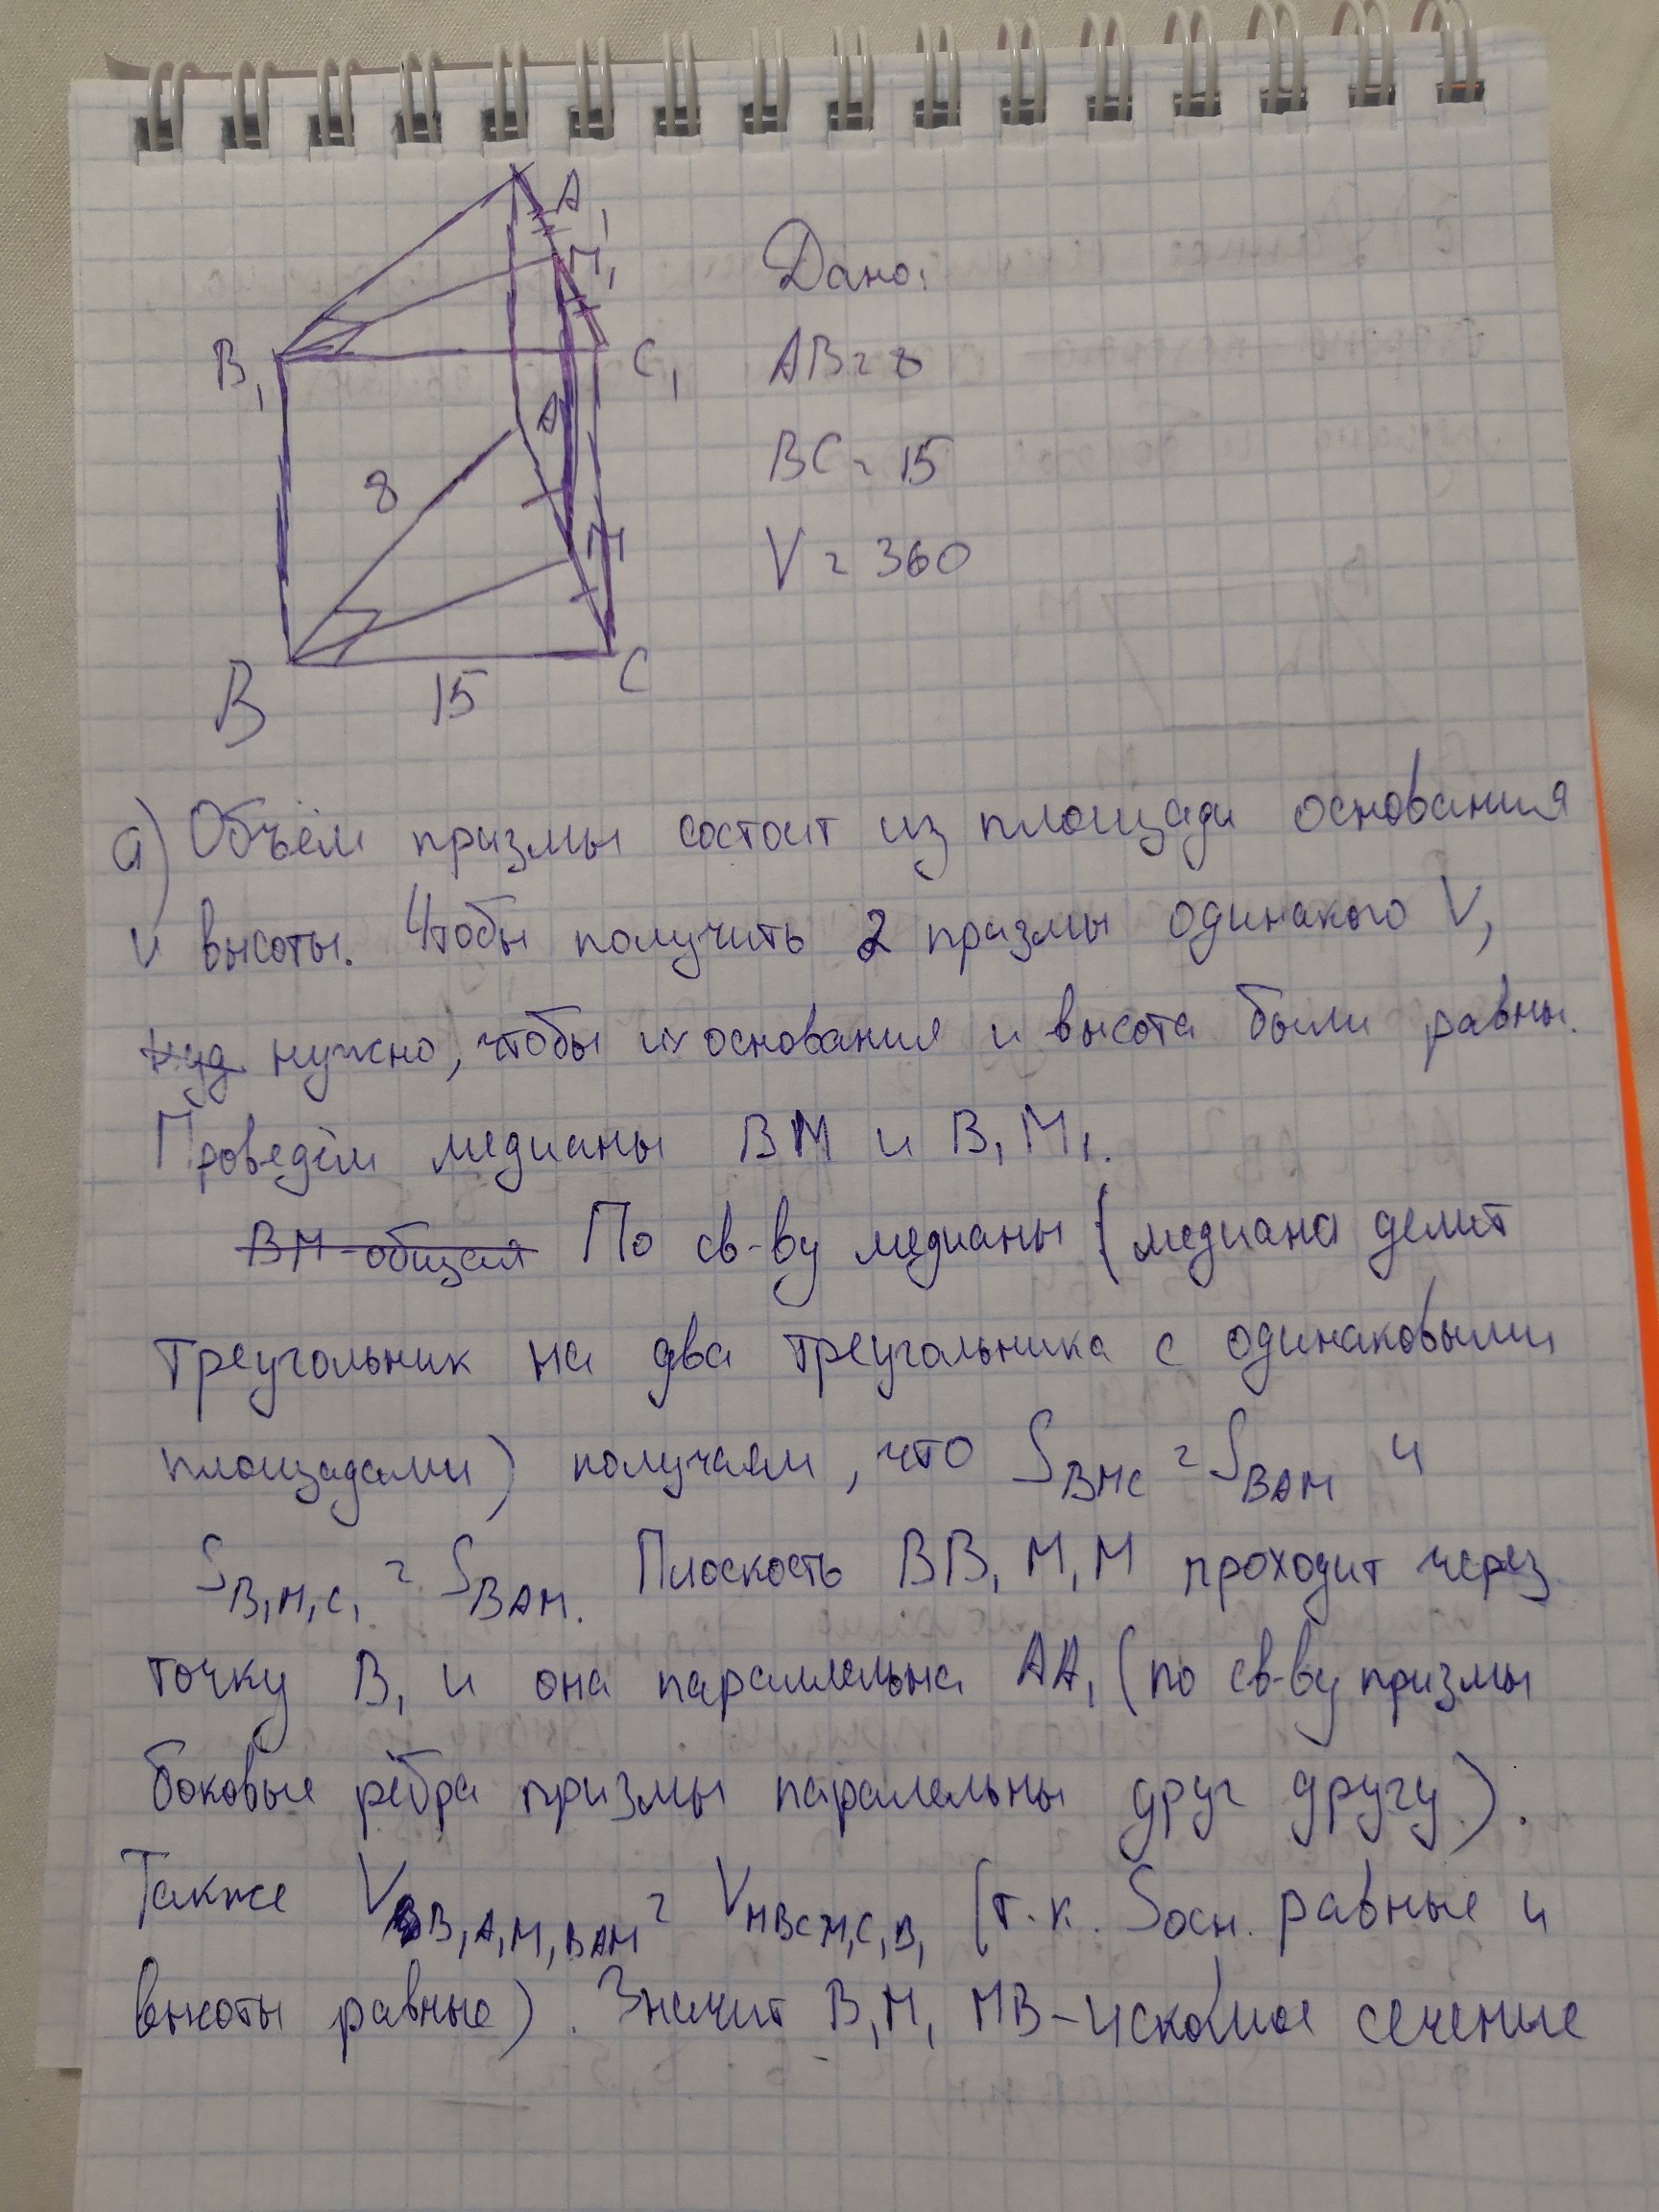 A₁
M₁
B₁
C₁
A
8
M
B
15
C
Дано:
AB = 8
BC = 15
V = 360
а) Объём призмы состоит из площади основания
и высоты. Чтобы получить 2 призмы одинакого V,
нуд нужно, чтобы их основания и высота были равны.
Проведём медианы BM и B₁M₁.
BM - общая По св-ву медианы (медиана делит
треугольник на два треугольника с одинаковыми
площадами) получаем, что S BMC = S BAM и
S B₁M₁C₁ = S BAM. Плоскость BB₁M₁M проходит через
точку B₁ и она параллельна AA₁ (по св-ву призмы
боковые рёбра призмы паралельны друг другу).
Также V B₁A₁M₁BAM = V MBCM₁C₁B₁ (т.к. Sосн. равные и
высоты равные). Значит B₁M₁MB - искомое сечение